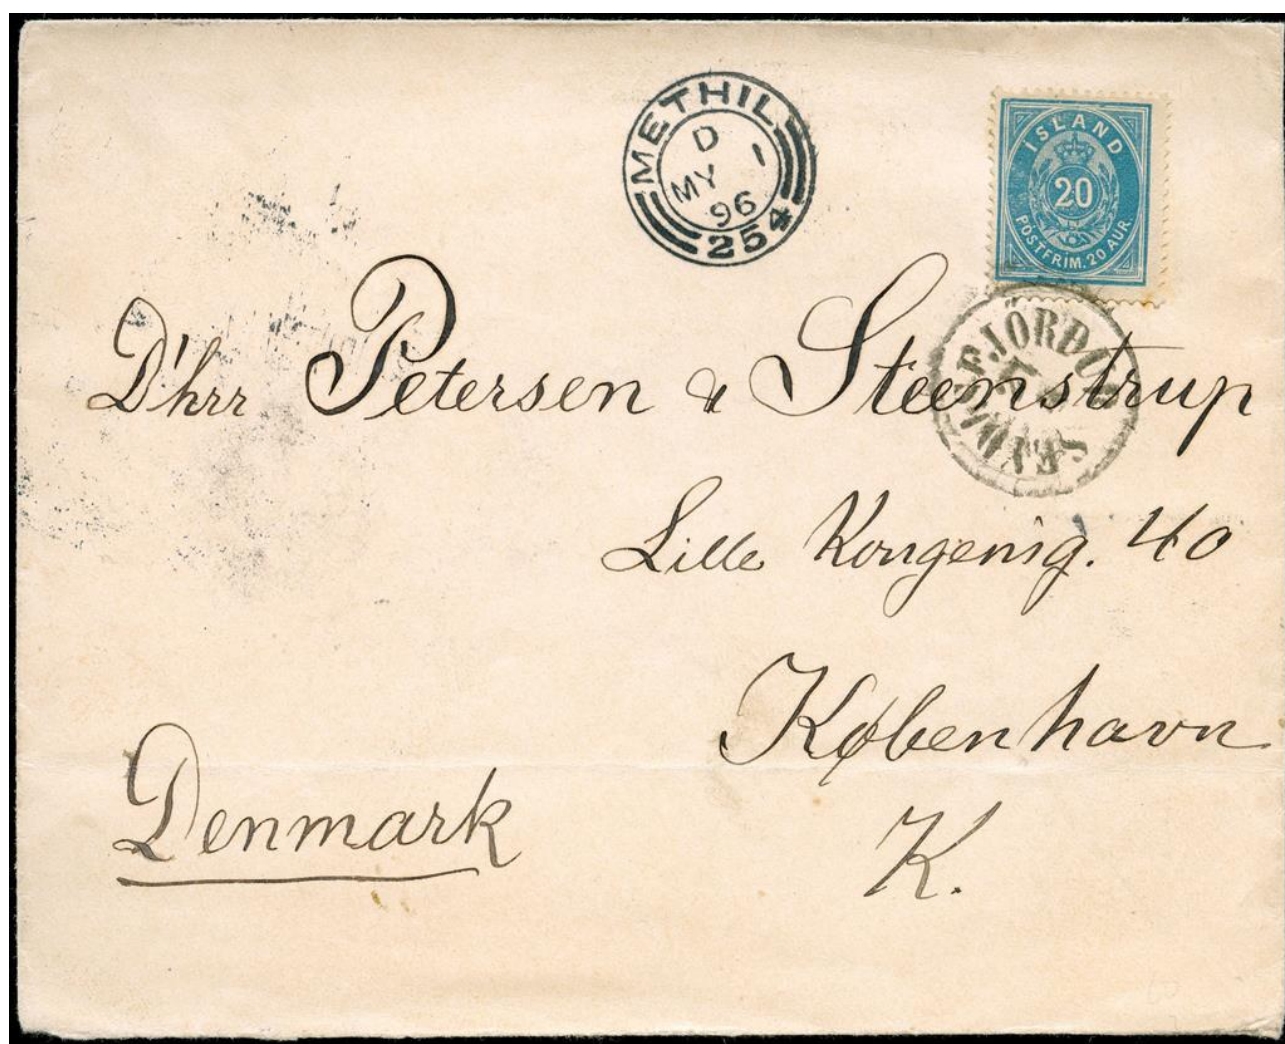 METHIL
D
MY 1
96
254
ÍSLAND
20
PÓSTFRIM. 20 AUR.
SEYDISFJÖRDUR
D'hrr Petersen & Steenstrup
Lille Kongensg. 40
København
K.
Denmark